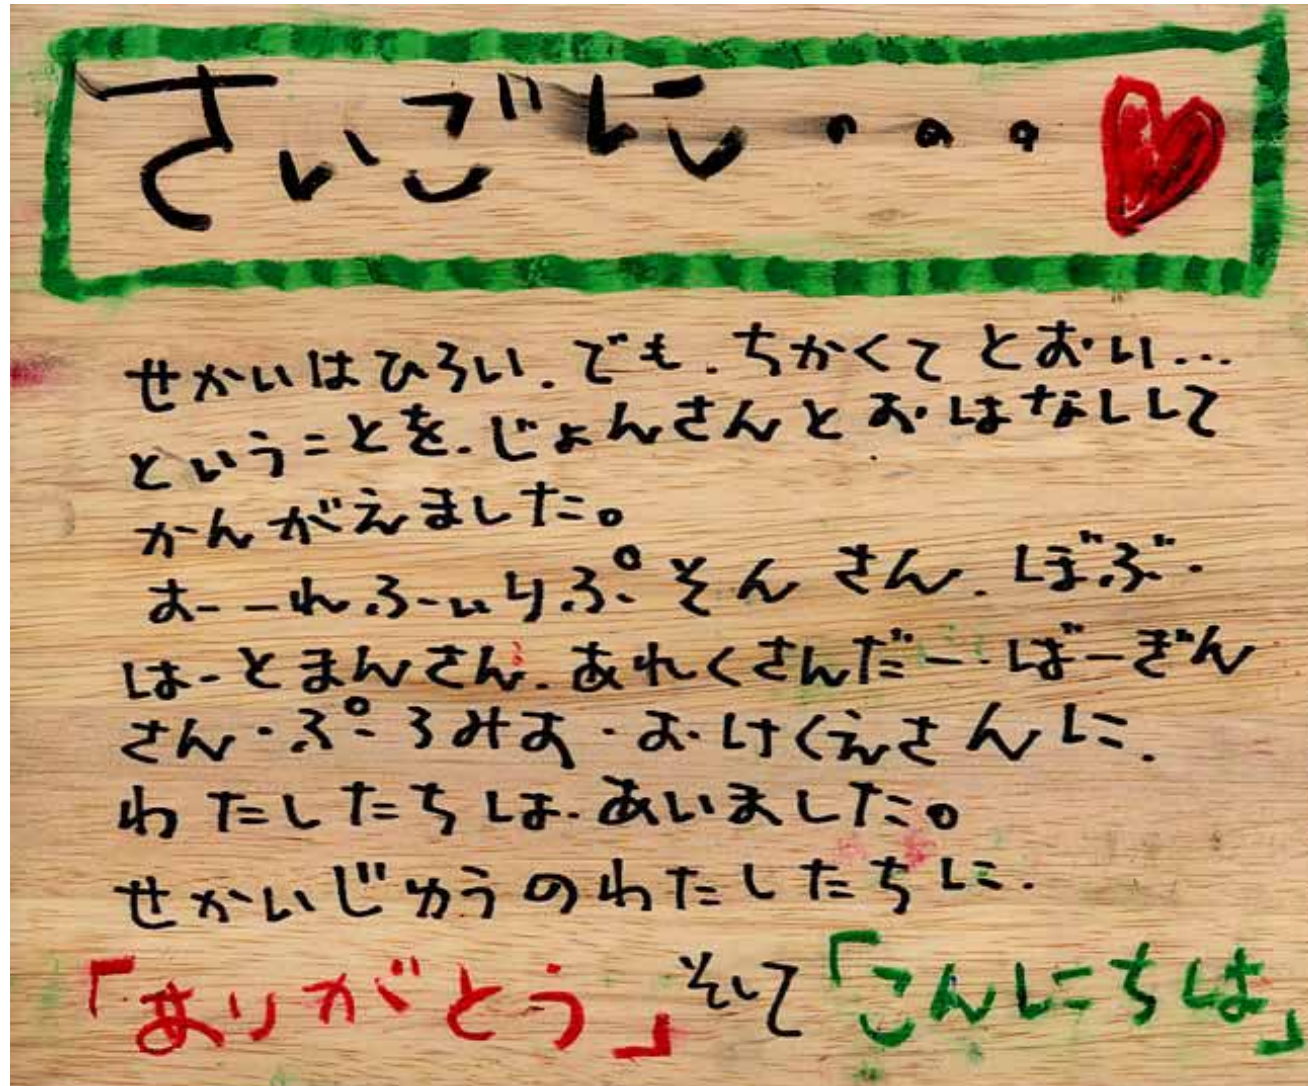 さいごに・・・
せかいはひろい.でも.ちかくてとおい...
ということを.じょんさんとおはなしして
かんがえました。
おーれふぃりぷそんさん.ぼぶ・
はーとまんさん.あれくさんだー・ばーぎん
さん・ぷろみお・お・けくえさんに.
わたしたちは.あいました。
せかいじゅうのわたしたちに.
「ありがとう」そして「こんにちは」